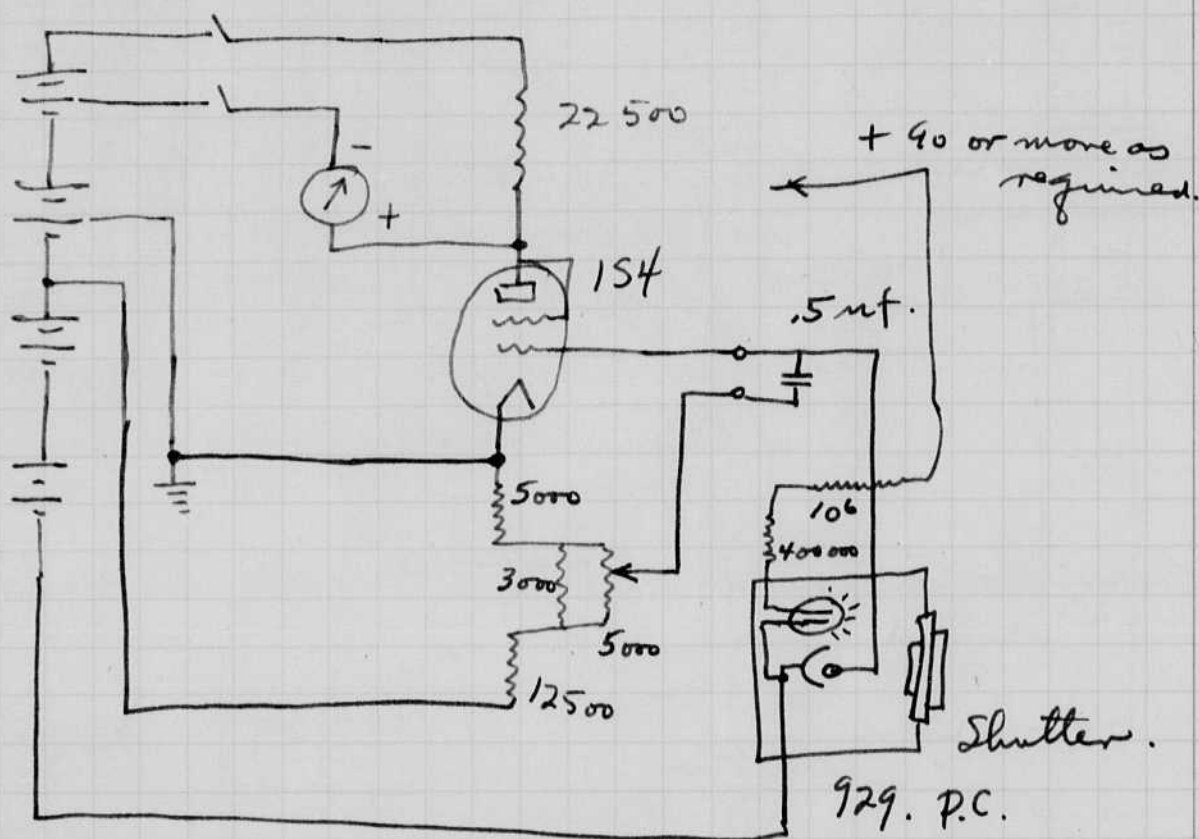 22 500
+ 90 or more as
required.
-
+
1S4
.5 mf.
5000
10⁶
400000
3000
5000
12500
Shutter.
929. P.C.